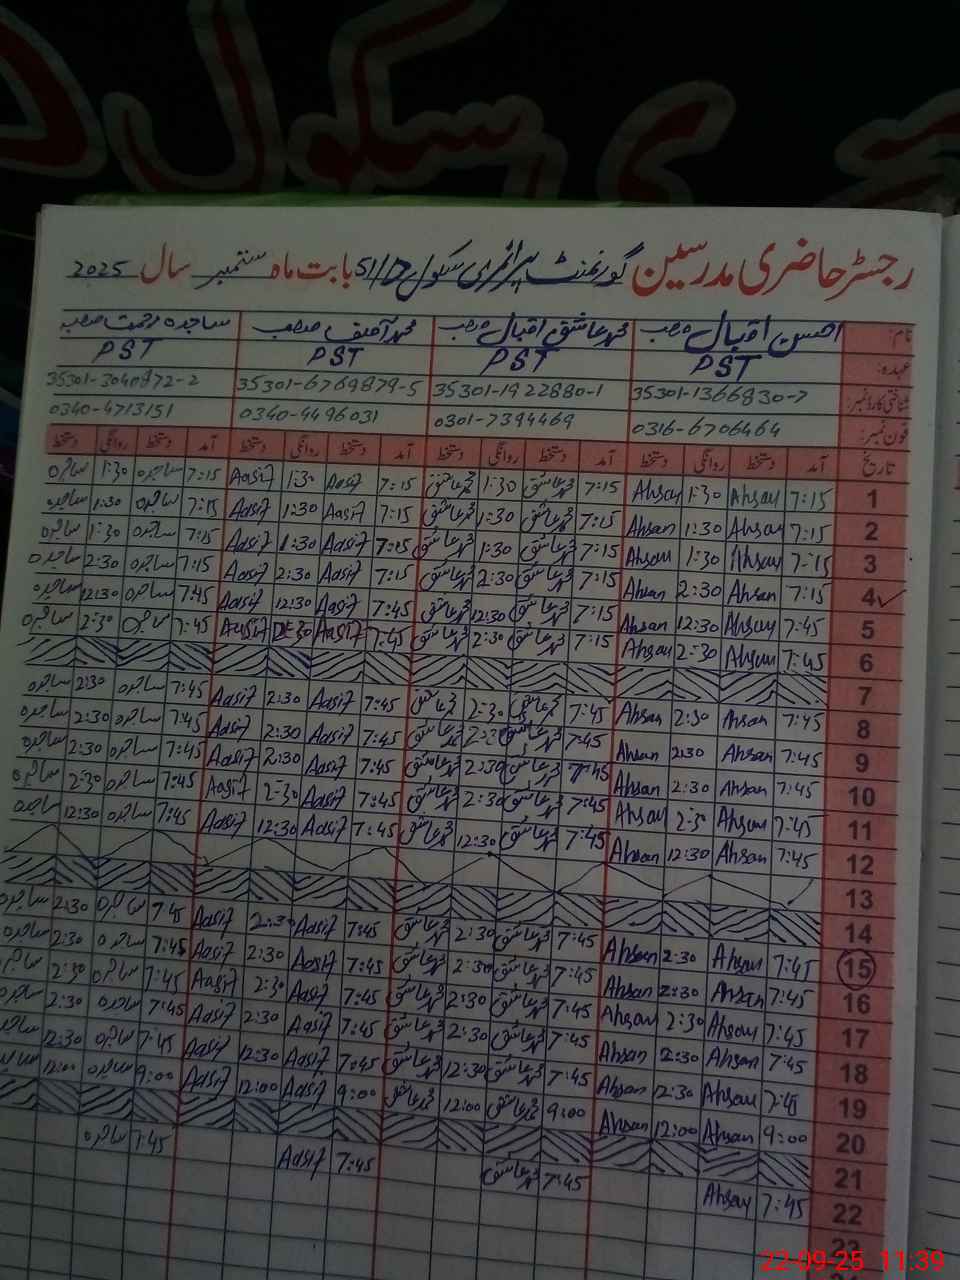 سکول
رجسٹر حاضری مدرسین گورنمنٹ پرائمری سکول 51/D بابت ماہ ستمبر سال 2025
نام: احسن اقبال صاحب محمد عاشق اقبال صاحب محمد آصف صاحب ساجدہ رحمت صاحبہ
عہدہ: PST PST PST PST
شناختی کارڈ نمبر: 35301-1366830-7 35301-1922880-1 35301-6769879-5 35301-3040872-2
فون نمبر: 0316-6706464 0301-7394469 0340-4496031 0340-4713151
تاریخ آمد دستخط روانگی دستخط آمد دستخط روانگی دستخط آمد دستخط روانگی دستخط آمد دستخط روانگی دستخط
1 7:15 Ahsan 1:30 Ahsan 7:15 محمد عاشق 1:30 محمد عاشق 7:15 Aasif 1:30 Aasif 7:15 ساجدہ 1:30 ساجدہ
2 7:15 Ahsan 1:30 Ahsan 7:15 محمد عاشق 1:30 محمد عاشق 7:15 Aasif 1:30 Aasif 7:15 ساجدہ 1:30 ساجدہ
3 7:15 Ahsan 1:30 Ahsan 7:15 محمد عاشق 1:30 محمد عاشق 7:15 Aasif 1:30 Aasif 7:15 ساجدہ 1:30 ساجدہ
4 7:15 Ahsan 2:30 Ahsan 7:15 محمد عاشق 2:30 محمد عاشق 7:15 Aasif 2:30 Aasif 7:15 ساجدہ 2:30 ساجدہ
5 7:45 Ahsan 12:30 Ahsan 7:15 محمد عاشق 12:30 محمد عاشق 7:45 Aasif 12:30 Aasif 7:45 ساجدہ 12:30 ساجدہ
6 7:45 Ahsan 2:30 Ahsan 7:15 محمد عاشق 2:30 محمد عاشق 7:45 Aasif 2:30 Aasif 7:45 ساجدہ 2:30 ساجدہ
7
8 7:45 Ahsan 2:30 Ahsan 7:45 محمد عاشق 2:30 محمد عاشق 7:45 Aasif 2:30 Aasif 7:45 ساجدہ 2:30 ساجدہ
9 7:45 Ahsan 2:30 Ahsan 7:45 محمد عاشق 2:30 محمد عاشق 7:45 Aasif 2:30 Aasif 7:45 ساجدہ 2:30 ساجدہ
10 7:45 Ahsan 2:30 Ahsan 7:45 محمد عاشق 2:30 محمد عاشق 7:45 Aasif 2:30 Aasif 7:45 ساجدہ 2:30 ساجدہ
11 7:45 Ahsan 2:30 Ahsan 7:45 محمد عاشق 2:30 محمد عاشق 7:45 Aasif 2:30 Aasif 7:45 ساجدہ 2:30 ساجدہ
12 7:45 Ahsan 12:30 Ahsan 7:45 محمد عاشق 12:30 محمد عاشق 7:45 Aasif 12:30 Aasif 7:45 ساجدہ 12:30 ساجدہ
13
14
15 7:45 Ahsan 2:30 Ahsan 7:45 محمد عاشق 2:30 محمد عاشق 7:45 Aasif 2:30 Aasif 7:45 ساجدہ 2:30 ساجدہ
16 7:45 Ahsan 2:30 Ahsan 7:45 محمد عاشق 2:30 محمد عاشق 7:45 Aasif 2:30 Aasif 7:45 ساجدہ 2:30 ساجدہ
17 7:45 Ahsan 2:30 Ahsan 7:45 محمد عاشق 2:30 محمد عاشق 7:45 Aasif 2:30 Aasif 7:45 ساجدہ 2:30 ساجدہ
18 7:45 Ahsan 2:30 Ahsan 7:45 محمد عاشق 2:30 محمد عاشق 7:45 Aasif 2:30 Aasif 7:45 ساجدہ 2:30 ساجدہ
19 7:45 Ahsan 12:30 Ahsan 7:45 محمد عاشق 12:30 محمد عاشق 7:45 Aasif 12:30 Aasif 7:45 ساجدہ 12:30 ساجدہ
20 9:00 Ahsan 12:00 Ahsan 9:00 محمد عاشق 12:00 محمد عاشق 9:00 Aasif 12:00 Aasif 9:00 ساجدہ 12:00 ساجدہ
21
22 7:45 Ahsan 7:45 محمد عاشق 7:45 Aasif 7:45 ساجدہ
23
22-09-25 11:39